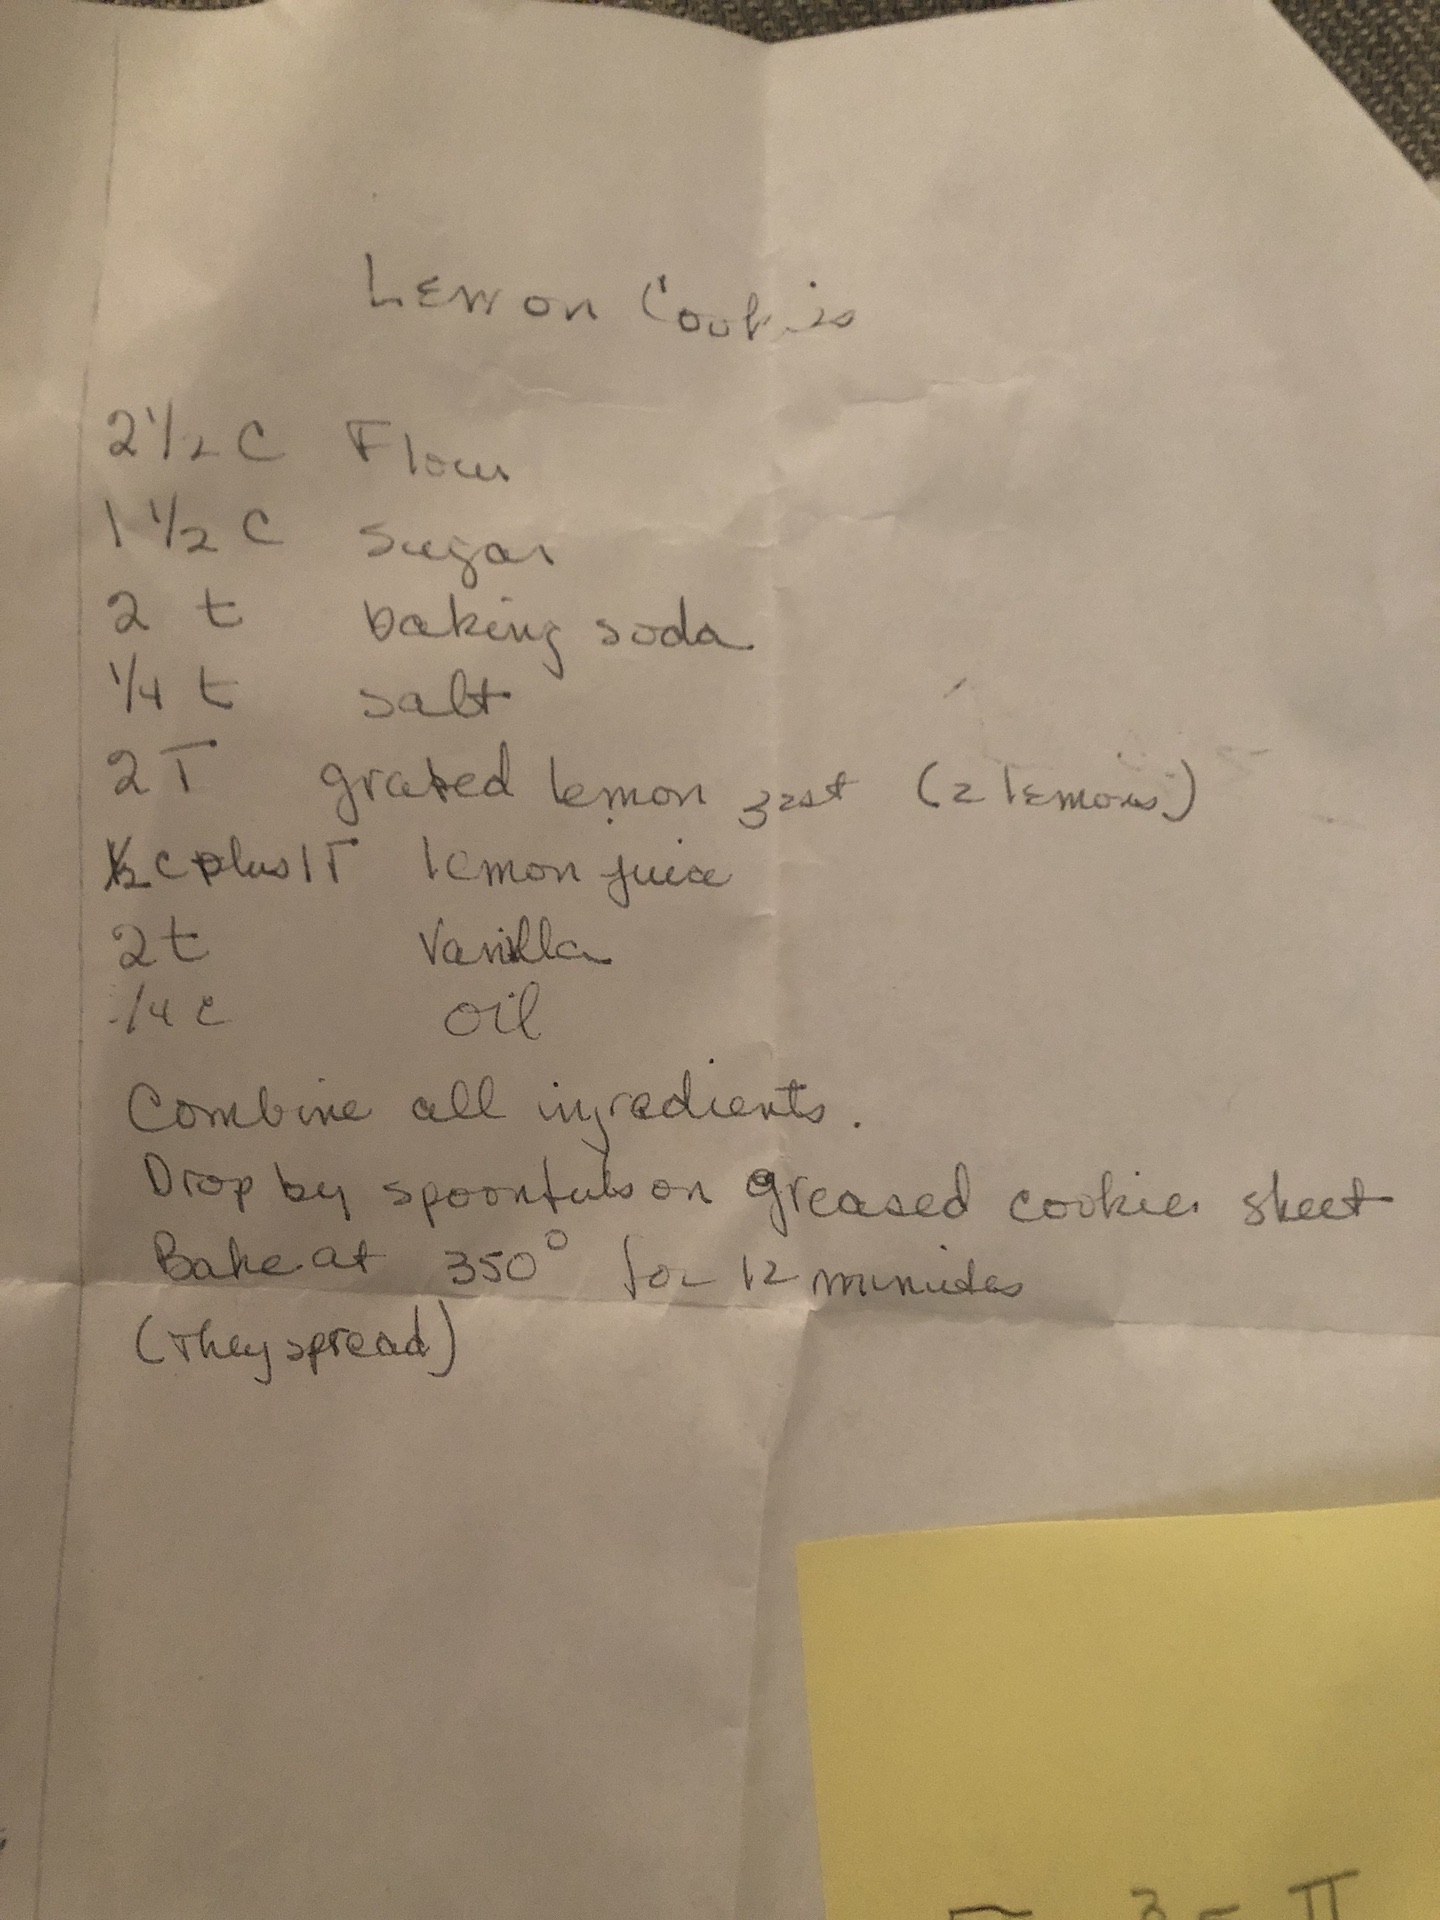 Lemon Cookies
2 1/2 C Flour
1 1/2 C sugar
2 t baking soda
1/4 t salt
2 T grated lemon zest (2 lemons)
1/2 c plus 1 T lemon juice
2 t Vanilla
1/4 c oil
Combine all ingredients.
Drop by spoonfuls on greased cookie sheet
Bake at 350° for 12 minutes
(They spread)